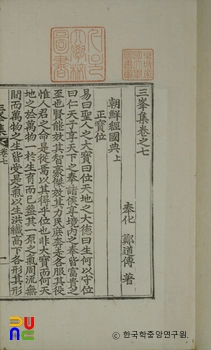 三峯集卷之七
奉化 鄭道傳 著
朝鮮經國典上
正寶位
易曰聖人之大寶曰位天地之大德曰生何以守位
曰仁天子享天下之奉諸侯享境內之奉皆富貴之
至也賢能效其智豪傑效其力民庶奔走各服其役
惟人君之命是從焉以其得乎位也非大寶而何天
地之於萬物一於生育而已蓋其一原之氣周流無
間而萬物之生皆受是氣以生洪纖高下各形其形
한국학중앙연구원